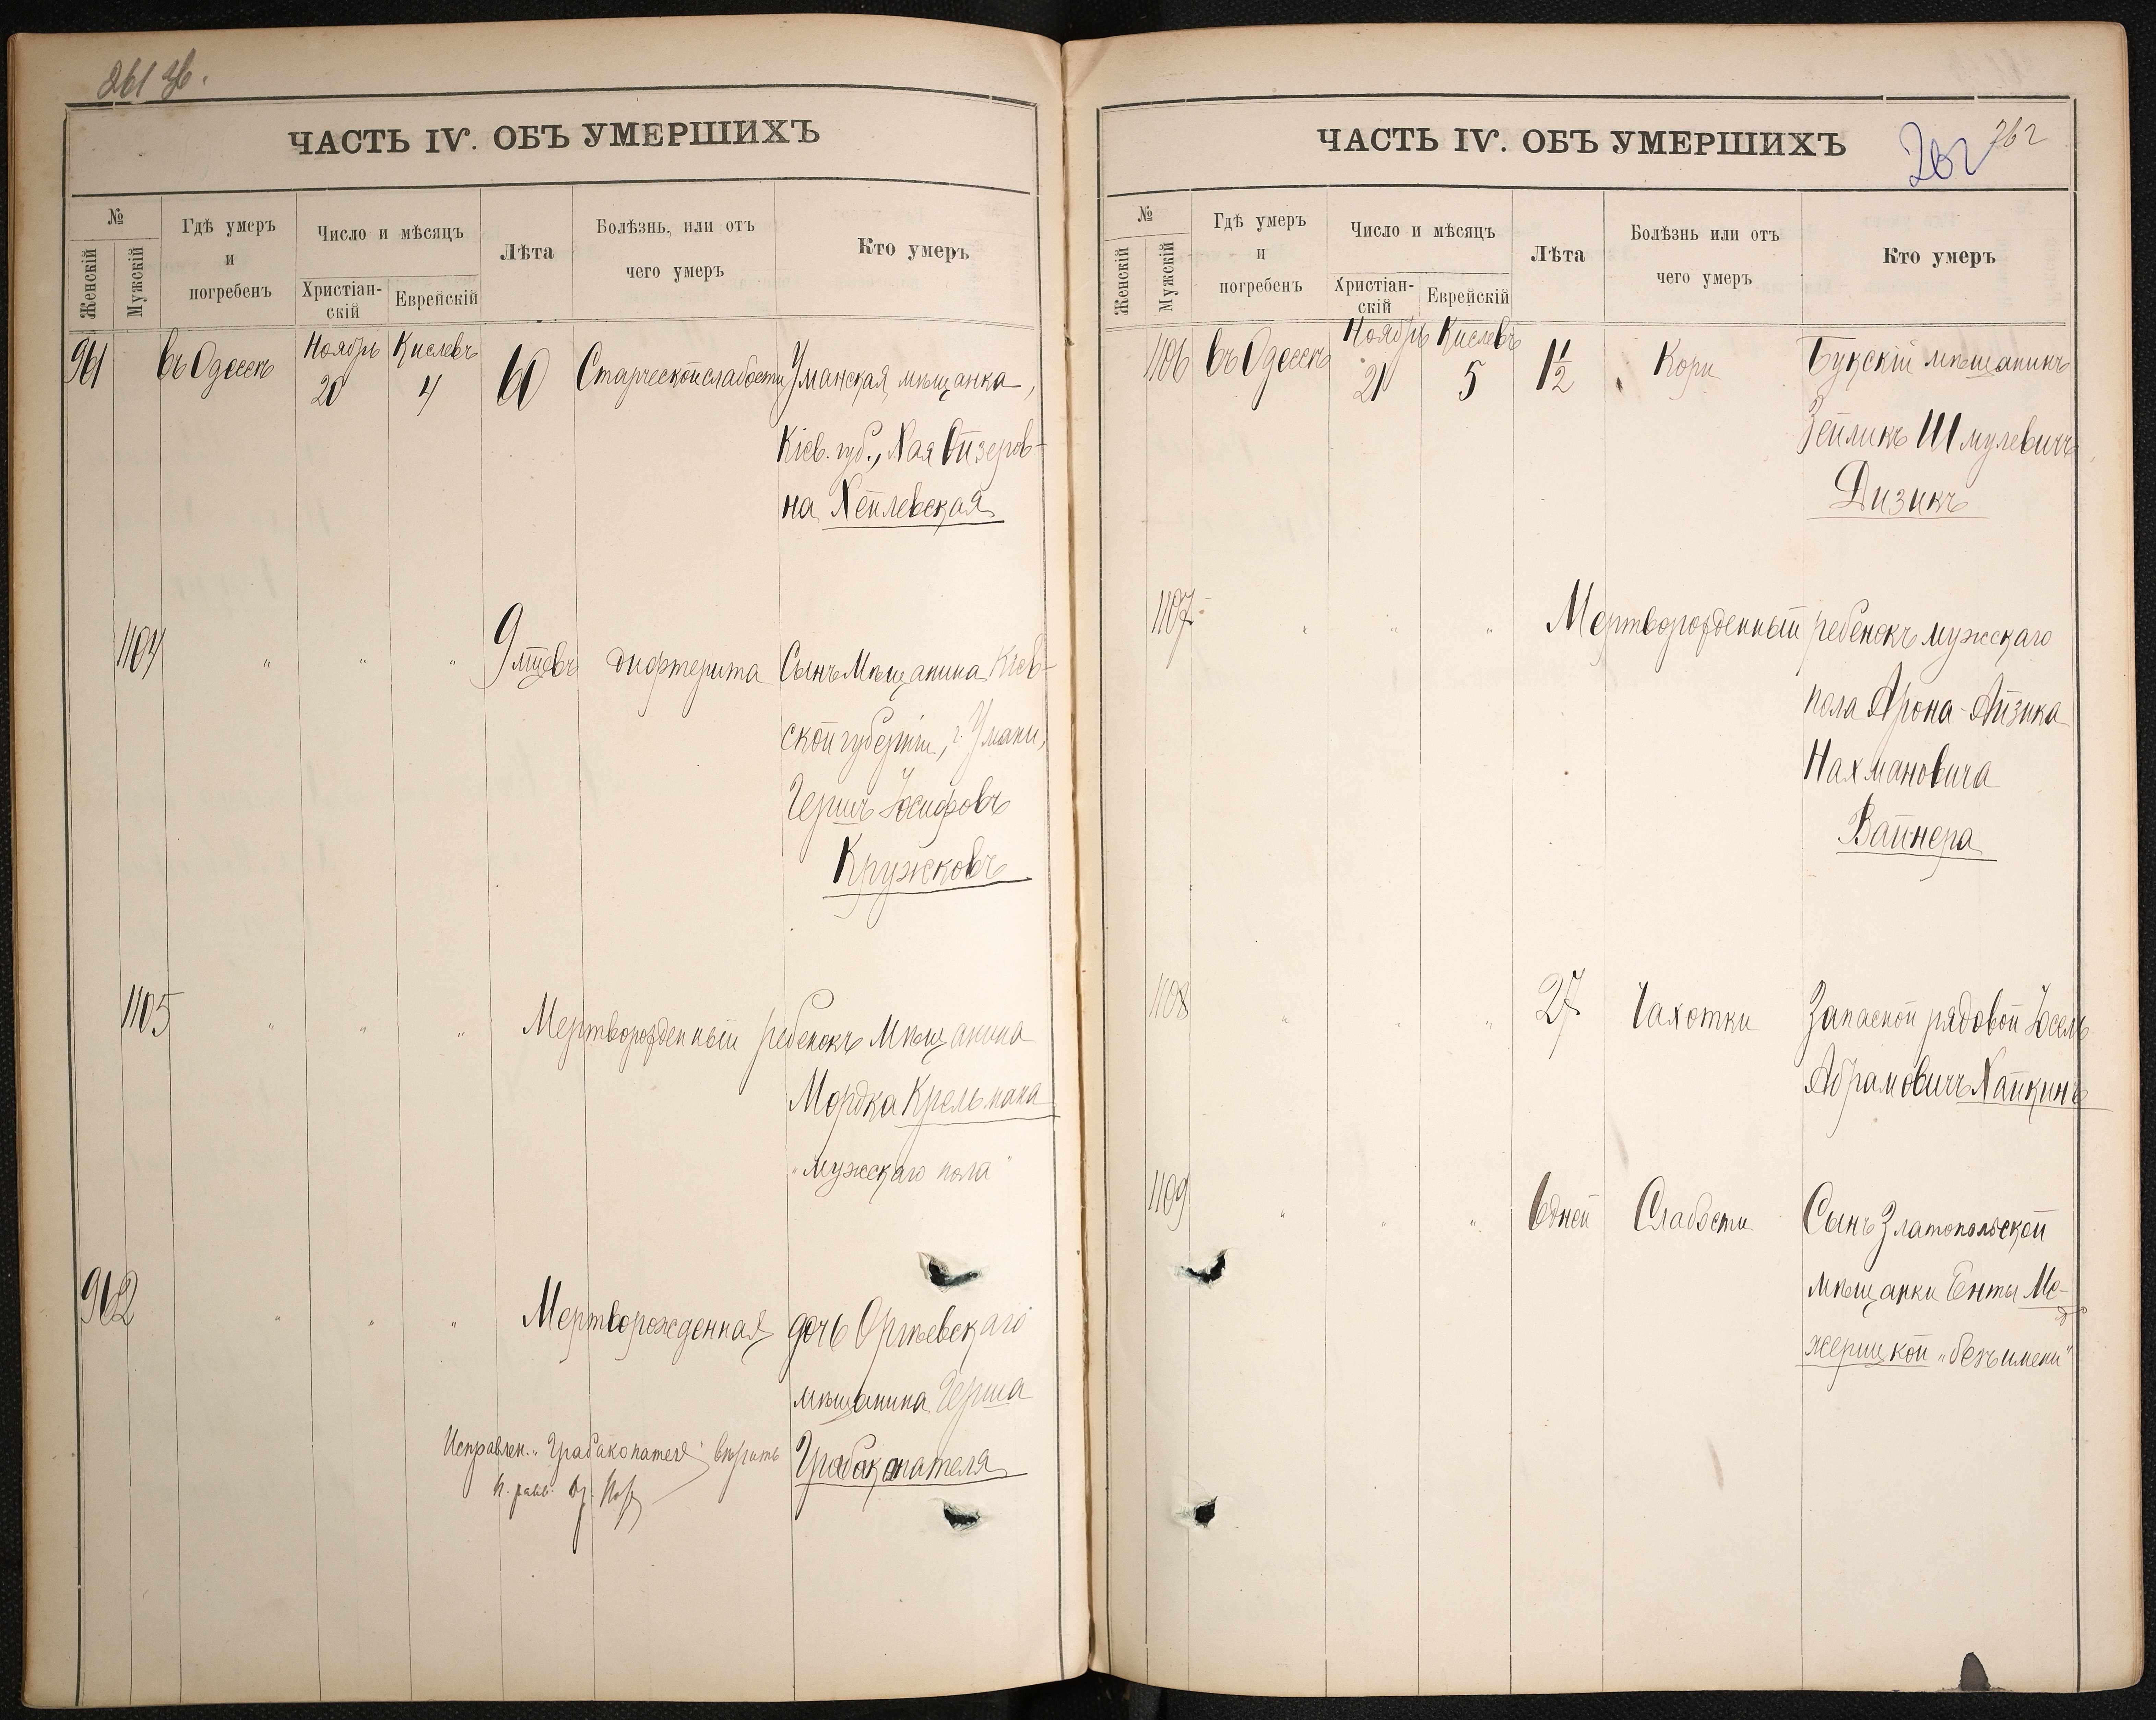 261 зв.
ЧАСТЬ IV. ОБЪ УМЕРШИХЪ
№
Женскій
Мужскій
Гдѣ умеръ
и
погребенъ
Число и мѣсяцъ
Христіан-
скій
Еврейскій
Лѣта
Болѣзнь, или отъ
чего умеръ
Кто умеръ
961 въ Одессѣ Ноябрь 20 Кислевъ 4 60 Старческой слабости Уманская мѣщанка,
Кіев. губ., Хая Ойзеров-
на Хейлевская
1104 " " " 9 мѣсцевъ дифтерита Сынъ мѣщанина Кіев-
ской губерніи, г. Умани,
Гершъ Іосифовъ
Кружковъ
1105 " " " Мертворожденный ребенокъ мѣщанина
Мордка Крельмана
"мужскаго пола"
962 " " " Мертворожденная дочь Оргѣевскаго
мѣщанина Герша
Грабакопателя
Исправлен. "Грабакопателя" вѣрить
262
262
ЧАСТЬ IV. ОБЪ УМЕРШИХЪ
№
Женскій
Мужскій
Гдѣ умеръ
и
погребенъ
Число и мѣсяцъ
Христіан-
скій
Еврейскій
Лѣта
Болѣзнь или отъ
чего умеръ
Кто умеръ
1106 въ Одессѣ Ноябрь 21 Кислевъ 5 1½ Кори Букскій мѣщанинъ
Зейликъ Шмулевичъ
Дизикъ
1107 " " " Мертворожденный ребенокъ мужскаго
пола Арона-Айзика
Нахмановича
Вайнера
1108 " " " 27 Чахотки Запасной рядовой Іосель
Абрамовичъ Хайкинъ
1109 " " " 6 дней Слабости Сынъ Златопольской
мѣщанки Енты Ме-
жерицкой "безъ имени"